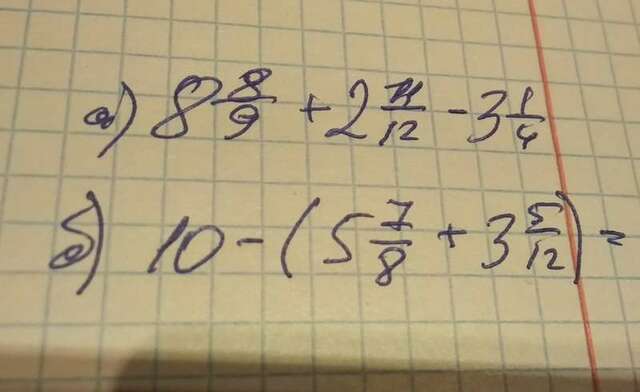 а) 8 8/9 + 2 11/12 - 3 1/4
б) 10 - (5 7/8 + 3 5/12) =